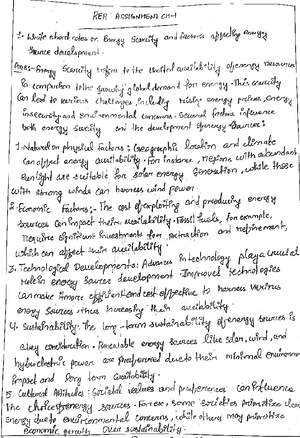 RER ASSIGNMENT CH-1
1. Write short notes on Energy Scarcity and factors affecting energy
Source development.
Ans:- Energy Scarcity refers to the limited availability of energy resources
in comparison to the growing global demand for energy. This scarcity
can lead to various challenges, including rising energy prices, energy
insecurity and environmental concerns. Several factors influence
both energy scarcity and the development of energy sources:
1. Natural or physical factors: Geographic location and climate
can affect energy availability. For instance, regions with abundant
sunlight are suitable for solar energy generation, while those
with strong winds can harness wind power.
2. Economic Factors:- The cost of exploiting and producing energy
sources can impact their availability. Fossil fuels, for example,
require significant investments for extraction and refinement,
which can affect their availability.
3. Technological Developments: Advances in technology play a crucial
role in energy source development. Improved technologies
can make it more efficient and cost effective to harness various
energy sources thus increasing their availability.
4. Sustainability: The long-term sustainability of energy sources is
a key consideration. Renewable energy sources like solar, wind, and
hydroelectric power are preferred due to their minimal environm
impact and long term availability.
5. Cultural Attitudes: Societal values and preferences can influence
the choice of energy sources. For ex, some societies prioritize clean
energy due to environmental concerns, while others may prioritize
economic growth over sustainability.